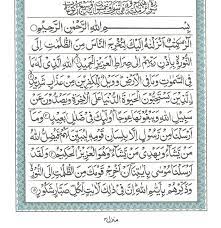 بِسْمِ اللهِ الرَّحْمٰنِ الرَّحِيْمِ
الٓرٰ كِتٰبٌ اَنْزَلْنٰهُ اِلَيْكَ لِتُخْرِجَ النَّاسَ مِنَ الظُّلُمٰتِ اِلَى
النُّوْرِ بِاِذْنِ رَبِّهِمْ اِلٰى صِرَاطِ الْعَزِيْزِ الْحَمِيْدِ اللهِ الَّذِيْ لَهٗ مَا
فِي السَّمٰوٰتِ وَمَا فِي الْاَرْضِ وَوَيْلٌ لِّلْكٰفِرِيْنَ مِنْ عَذَابٍ شَدِيْدِ
الَّذِيْنَ يَسْتَحِبُّوْنَ الْحَيٰوةَ الدُّنْيَا عَلَى الْاٰخِرَةِ وَيَصُدُّوْنَ عَنْ
سَبِيْلِ اللهِ وَيَبْغُوْنَهَا عِوَجًا اُولٰٓئِكَ فِيْ ضَلٰلٍۢ بَعِيْدٍ وَمَآ
اَرْسَلْنَا مِنْ رَّسُوْلٍ اِلَّا بِلِسَانِ قَوْمِهٖ لِيُبَيِّنَ لَهُمْ فَيُضِلُّ اللهُ
مَنْ يَّشَآءُ وَيَهْدِيْ مَنْ يَّشَآءُ وَهُوَ الْعَزِيْزُ الْحَكِيْمُ وَلَقَدْ
اَرْسَلْنَا مُوْسٰى بِاٰيٰتِنَآ اَنْ اَخْرِجْ قَوْمَكَ مِنَ الظُّلُمٰتِ اِلَى النُّوْرِ
وَذَكِّرْهُمْ بِاَيّٰىمِ اللهِ اِنَّ فِيْ ذٰلِكَ لَاٰيٰتٍ لِّكُلِّ صَبَّارٍ شَكُوْرٍ
منزل ٣